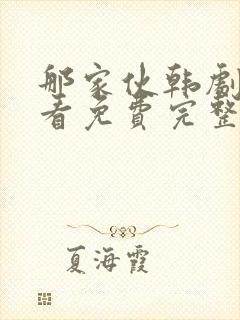 那家伙韩剧
看免費完整
夏海霞